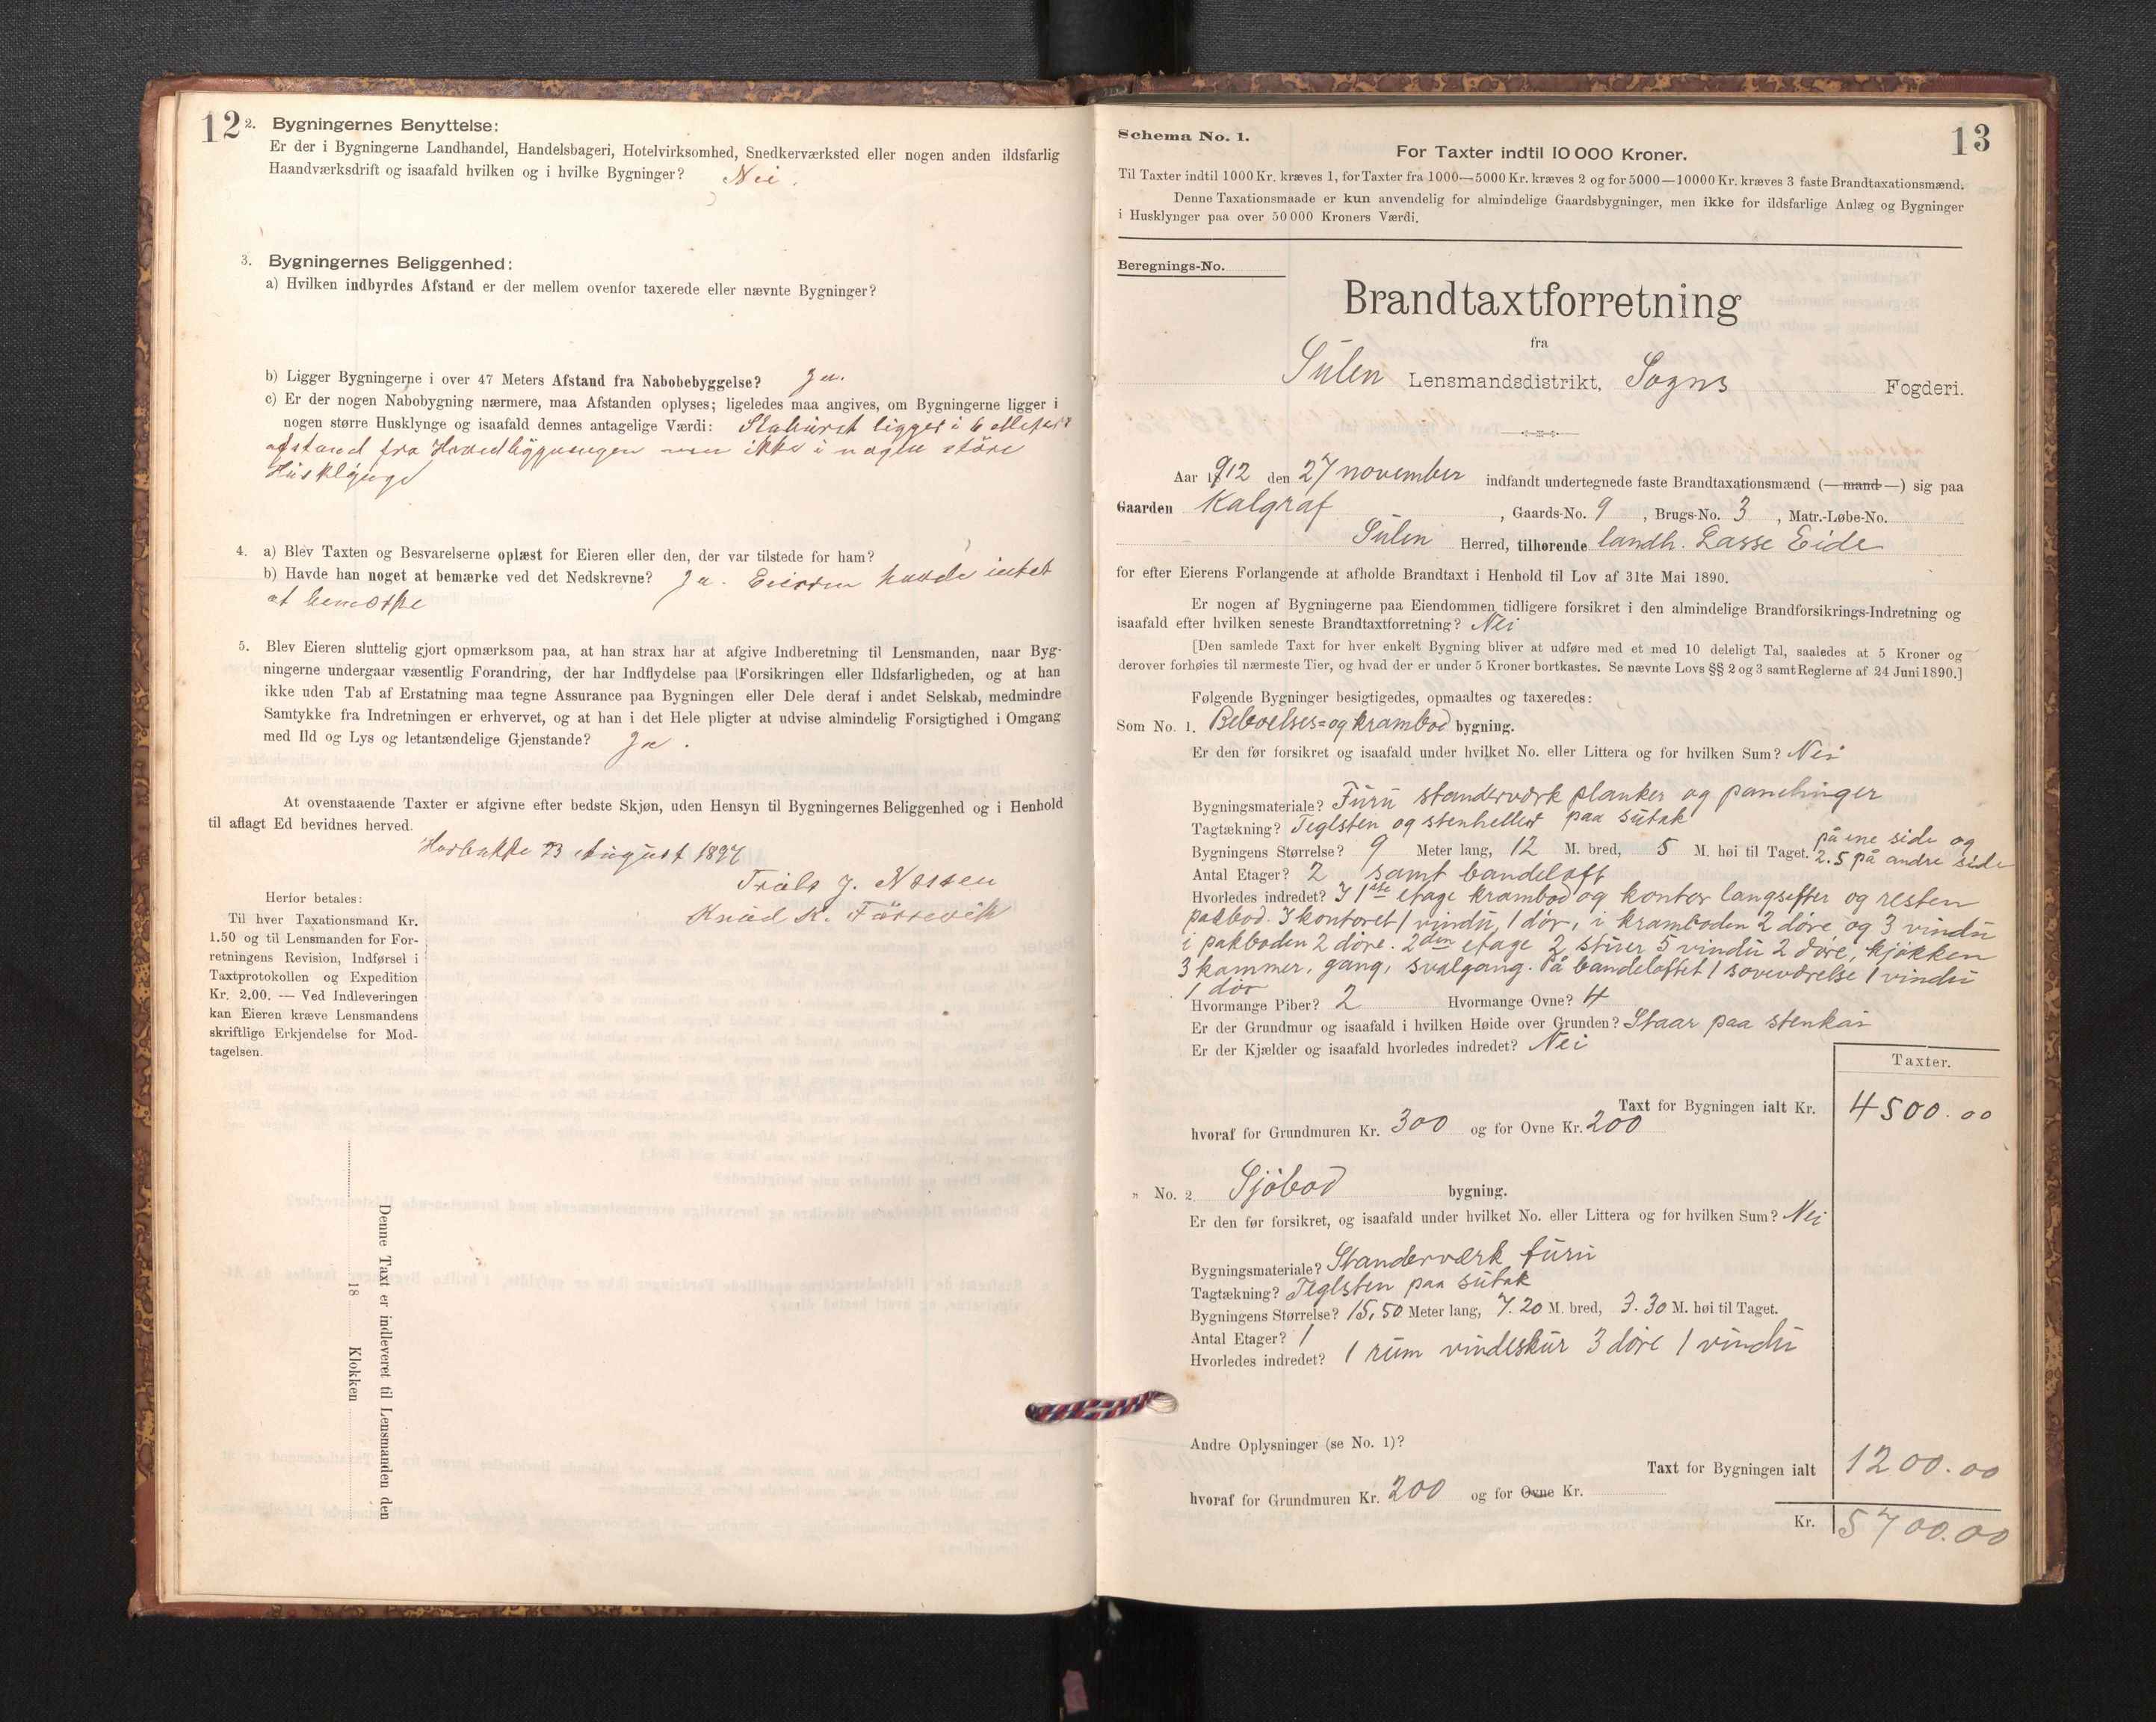 12
2. Bygningernes Benyttelse:
Er der i Bygningerne Landhandel, Handelsbageri, Hotelvirksomhed, Snedkerværksted eller nogen anden ildsfarlig
Haandværksdrift og isaafald hvilken og i hvilke Bygninger? Nei.
3. Bygningernes Beliggenhed:
a) Hvilken indbyrdes Afstand er der mellem ovenfor taxerede eller nævnte Bygninger?
b) Ligger Bygningerne i over 47 Meters Afstand fra Nabobebyggelse? Ja.
c) Er der nogen Nabobygning nærmere, maa Afstanden oplyses; ligeledes maa angives, om Bygningerne ligger i
nogen større Husklynge og isaafald dennes antagelige Værdi: Stahuset ligger i 6 Meters
afstand fra Hovedbyggningen men ikke i nogen störe
Husklynge
4. a) Blev Taxten og Besvarelserne oplæst for Eieren eller den, der var tilstede for ham?
b) Havde han noget at bemærke ved det Nedskrevne? Ja. Eieren havde intet
at bemærke
5. Blev Eieren sluttelig gjort opmærksom paa, at han strax har at afgive Indberetning til Lensmanden, naar Byg-
ningerne undergaar væsentlig Forandring, der har Indflydelse paa Forsikringen eller Ildsfarligheden, og at han
ikke uden Tab af Erstatning maa tegne Assurance paa Bygningen eller Dele deraf i andet Selskab, medmindre
Samtykke fra Indretningen er erhvervet, og at han i det Hele pligter at udvise almindelig Forsigtighed i Omgang
med Ild og Lys og letantændelige Gjenstande? Ja.
At ovenstaaende Taxter er afgivne efter bedste Skjøn, uden Hensyn til Bygningernes Beliggenhed og i Henhold
til aflagt Ed bevidnes herved.
Hosbakke 23 August 1897
Knud K.
Herfor betales:
Til hver Taxationsmand Kr.
1.50 og til Lensmanden for For-
retningens Revision, Indførsel i
Taxtprotokollen og Expedition
Kr. 2.00. — Ved Indleveringen
kan Eieren kræve Lensmandens
skriftlige Erkjendelse for Mod-
tagelsen.
Denne Taxt er indleveret til Lensmanden den
18 Klokken
13
Schema No. 1.
For Taxter indtil 10 000 Kroner.
Til Taxter indtil 1000 Kr. kræves 1, for Taxter fra 1000—5000 Kr. kræves 2 og for 5000—10000 Kr. kræves 3 faste Brandtaxationsmænd.
Denne Taxationsmaade er kun anvendelig for almindelige Gaardsbygninger, men ikke for ildsfarlige Anlæg og Bygninger
i Husklynger paa over 50 000 Kroners Værdi.
Beregnings-No.
Brandtaxtforretning
fra
Sulen Lensmandsdistrikt, Sogns Fogderi.
Aar 1912 den 27 november indfandt undertegnede faste Brandtaxationsmænd (—mand—) sig paa
Gaarden Kalgraf, Gaards-No. 9, Brugs-No. 3, Matr.-Løbe-No.
Sulen Herred, tilhørende landh. Lasse Eide
for efter Eierens Forlangende at afholde Brandtaxt i Henhold til Lov af 31te Mai 1890.
Er nogen af Bygningerne paa Eiendommen tidligere forsikret i den almindelige Brandforsikrings-Indretning og
isaafald efter hvilken seneste Brandtaxtforretning? Nei
[Den samlede Taxt for hver enkelt Bygning bliver at udføre med et med 10 deleligt Tal, saaledes at 5 Kroner og
derover forhøies til nærmeste Tier, og hvad der er under 5 Kroner bortkastes. Se nævnte Lovs §§ 2 og 3 samt Reglerne af 24 Juni 1890.]
Følgende Bygninger besigtigedes, opmaaltes og taxeredes:
Som No. 1. Beboelses= og krambod bygning.
Er den før forsikret og isaafald under hvilket No. eller Littera og for hvilken Sum? Nei
Bygningsmateriale? Furu standerværk planker og panelinger
Tagtækning? Teglsten og stenheller paa sutak
Bygningens Størrelse? 9 Meter lang, 12 M. bred, 5 M. høi til Taget. på ene side og
2.5 på andre side
Antal Etager? 2 samt bandeloft
Hvorledes indredet? I 1ste etage krambod og kontor langsefter og resten
pakbod. I kontoret 1 vindu, 1 dør, i kramboden 2 døre og 3 vindu
i pakboden 2 døre. 2den etage 2 stuer 5 vindu 2 døre, kjøkken
3 kammer, gang, svalgang. På bandeloftet 1 soveværelse 1 vindu
1 dør
Hvormange Piber? 2 Hvormange Ovne? 4
Er der Grundmur og isaafald i hvilken Høide over Grunden? Staar paa stenkar
Er der Kjælder og isaafald hvorledes indredet? Nei
Taxter.
Taxt for Bygningen ialt Kr. 4500.00
hvoraf for Grundmuren Kr. 300 og for Ovne Kr. 200
„ No. 2 Sjøbod bygning.
Er den før forsikret, og isaafald under hvilket No. eller Littera og for hvilken Sum? Nei
Bygningsmateriale? Standerværk furu
Tagtækning? Teglsten paa sutak
Bygningens Størrelse? 15,50 Meter lang, 7.20 M. bred, 3.30 M. høi til Taget.
Antal Etager? 1
Hvorledes indredet? 1 rum vindeskur 3 døre 1 vindu
Andre Oplysninger (se No. 1)?
Taxt for Bygningen ialt 1200.00
hvoraf for Grundmuren Kr. 200 og for Ovne Kr.
Kr. 5700.00